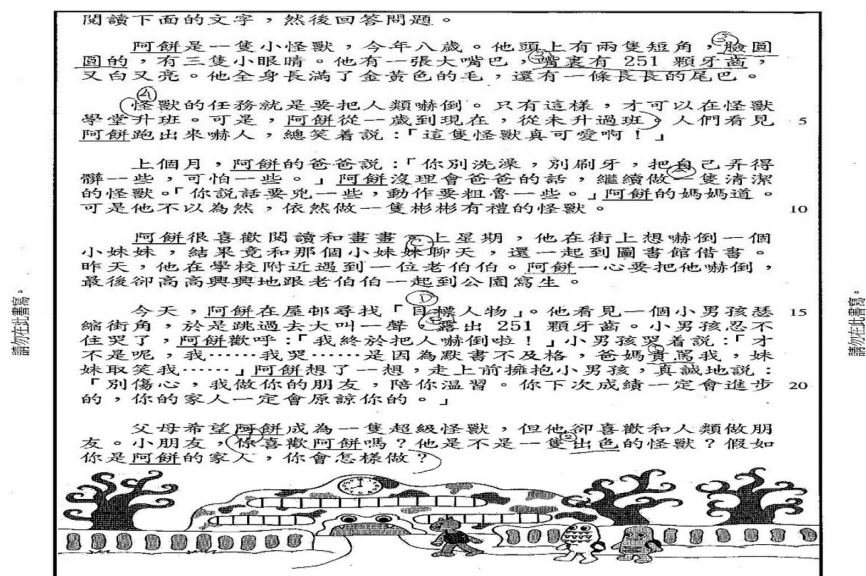 閱讀下面的文字,然後回答問題。
阿餅是一隻小怪獸,今年八歲。他頭上有兩隻短角,臉圓
圓的,有三隻小眼睛。他有一張大嘴巴,嘴裏有 251 顆牙齒,
又白又亮。他全身長滿了金黃色的毛,還有一條長長的尾巴。
怪獸的任務就是要把人類嚇倒。只有這樣,才可以在怪獸
學堂升班。可是,阿餅從一歲到現在,從未升過班。人們看見 5
阿餅跑出來嚇人,總笑着說:「這隻怪獸真可愛啊!」
上個月,阿餅的爸爸說:「你別洗澡,別刷牙,把自己弄得
髒一些,可怕一些。」阿餅沒理會爸爸的話,繼續做一隻清潔
的怪獸。「你說話要兇一些,動作要粗魯一些。」阿餅的媽媽道。
可是他不以為然,依然做一隻彬彬有禮的怪獸。 10
阿餅很喜歡閱讀和畫畫。上星期,他在街上想嚇倒一個
小妹妹,結果竟和那個小妹妹聊天,還一起到圖書館借書。
昨天,他在學校附近遇到一位老伯伯。阿餅一心要把他嚇倒,
最後卻高高興興地跟老伯伯一起到公園寫生。
今天,阿餅在屋邨尋找「目標人物」。他看見一個小男孩瑟 15
縮街角,於是跳過去大叫一聲,露出 251 顆牙齒。小男孩忍不
住哭了,阿餅歡呼:「我終於把人嚇倒啦!」小男孩哭着說:「才
不是呢,我……我哭……是因為默書不及格,爸媽責罵我,妹
妹取笑我……」阿餅想了一想,走上前擁抱小男孩,真誠地說:
「別傷心,我做你的朋友,陪你温習。你下次成績一定會進步 20
的,你的家人一定會原諒你的。」
父母希望阿餅成為一隻超級怪獸,但他卻喜歡和人類做朋
友。小朋友,你喜歡阿餅嗎?他是不是一隻出色的怪獸?假如
你是阿餅的家人,你會怎樣做?
請勿在此書寫。
請勿在此書寫。